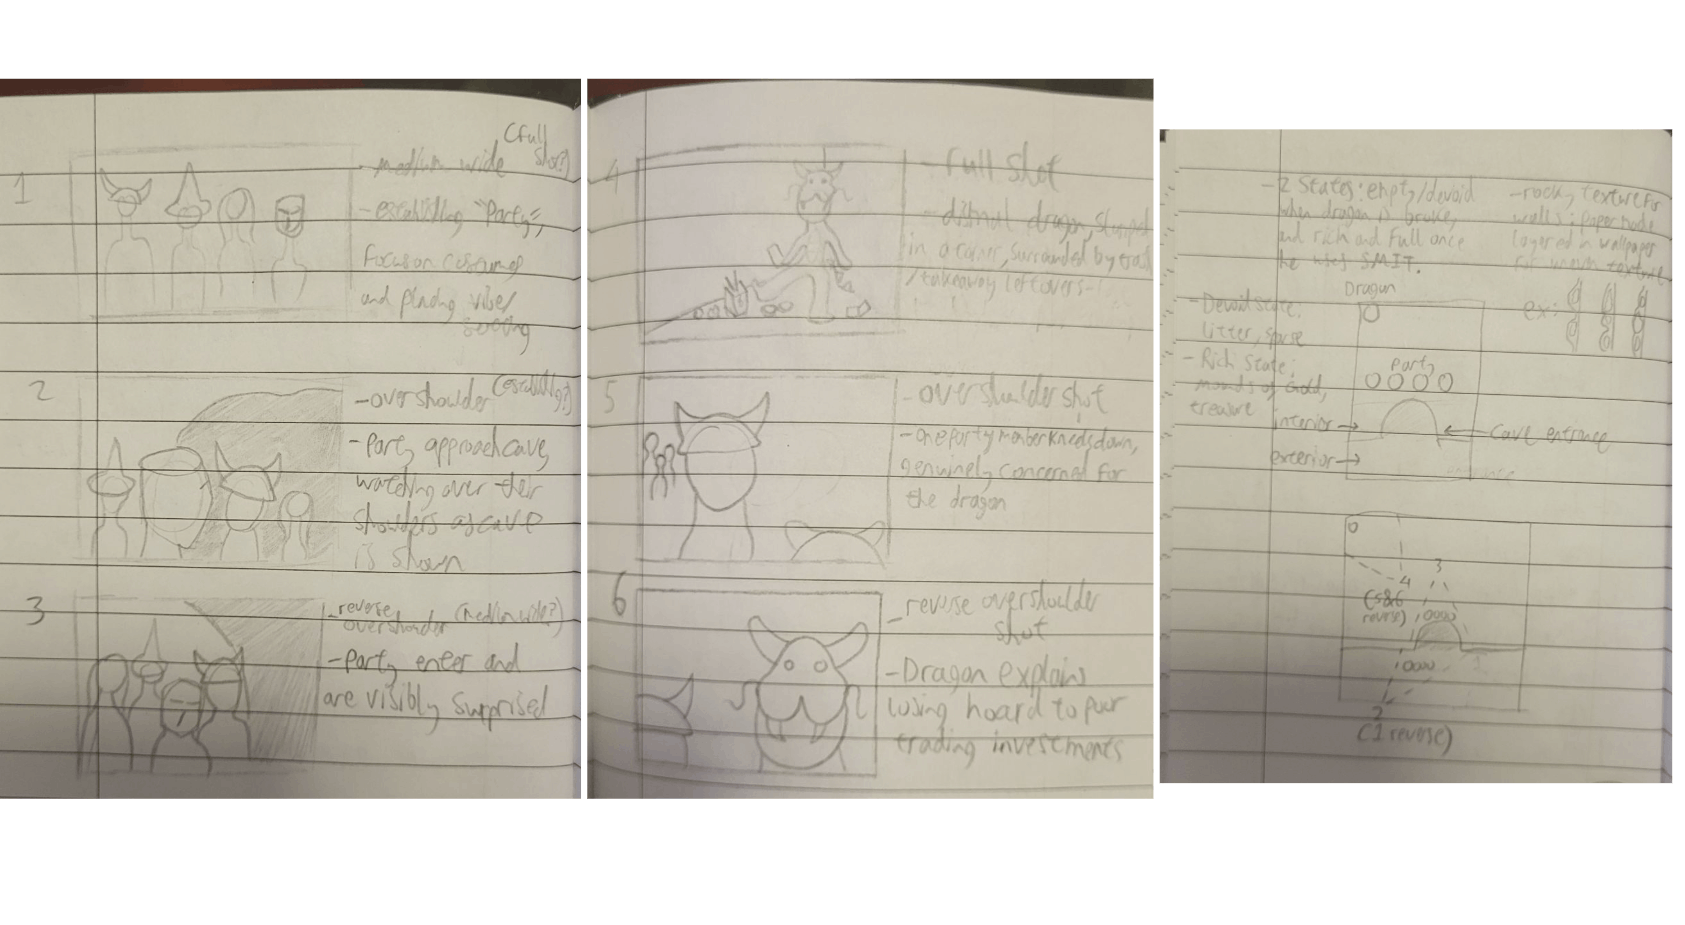 1
(full shot?)
- medium wide
- establishing "Party",
focus on costumes
and placing vibe/
2
- overshoulder (establishing?)
- Party approach cave,
watching over their
shoulders as cave
is shown
3
- reverse overshoulder (medium wide?)
- Party enter and
are visibly surprised
4
- Full shot
- dismal dragon, slumped
in a corner, surrounded by trash
/takeaway leftovers
5
- overshoulder shot
- one party member kneels down,
genuinely concerned for
the dragon
6
- reverse overshoulder
shot
- Dragon explains
losing hoard to poor
trading investments
- 2 States: empty/devoid
when dragon is broke,
and rich and full once
he uses
- rocky texture for
walls; paper
layered in wallpaper
for uneven texture
ex:
- Devoid state:
litter, sparse
- Rich state:
mounds of gold,
treasure
Dragon
Party
interior
exterior
Cave entrance
3
4
(5&6
reverse)
2
(1 reverse)